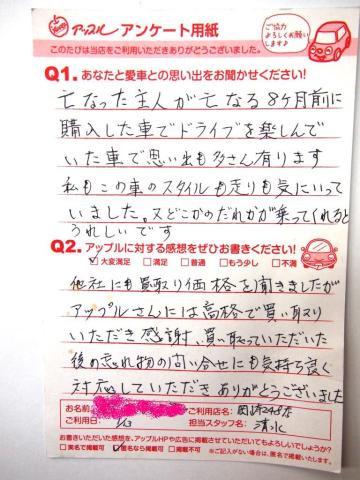 アップル アンケート用紙
ご協力
よろしくお願い
します♪
このたびは当店をご利用いただきありがとうございました。
Q1. あなたと愛車との思い出をお聞かせください!
亡なった主人が亡なる8ヶ月前に
購入した車でドライブを楽しんで
いた車で思い出も多さん有ります
私もこの車のスタイルも走りも気にいって
いました。又どこかのだれかが乗ってくれると
うれしいです
Q2. アップルに対する感想をぜひお書きください!
☑大変満足 □満足 □普通 □もう少し □不満
他社にも買取り価格を聞きましたが
アップルさんには高格で買い取り
いただき感謝、買い取っていただいた
後の忘れ物の問い合せにも気持ち良く
対応していただきありがとうございました
お名前
ご利用店名:
ご利用日:
担当スタッフ名: 清水
お書きいただいた感想を、アップルHPや広告に掲載させていただいてもよろしいでしょうか?
□実名で掲載可 ☑匿名なら掲載可 □掲載不可 ※ご記入がない場合は、匿名で掲載いたします。